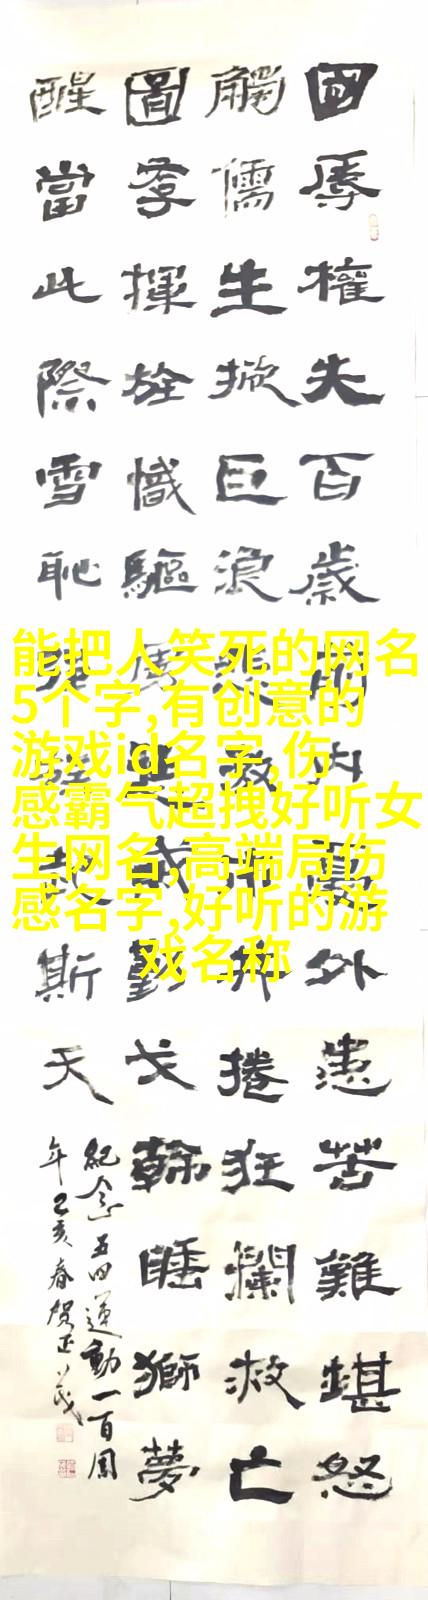 國辱權失百歲前内憂外患苦難堪怒
觸儒生掀巨浪救捲狂瀾救亡
圖存揮旌幟驅戈睡獅夢
醒當此際雪恥斯天
紀念五四運動一百周
年己亥春賀正
能把人笑死的网名
5个字,有创意的
游戏id名字,伤
感霸气超拽好听女
生网名,高端局伤
感名字,好听的游
戏名称